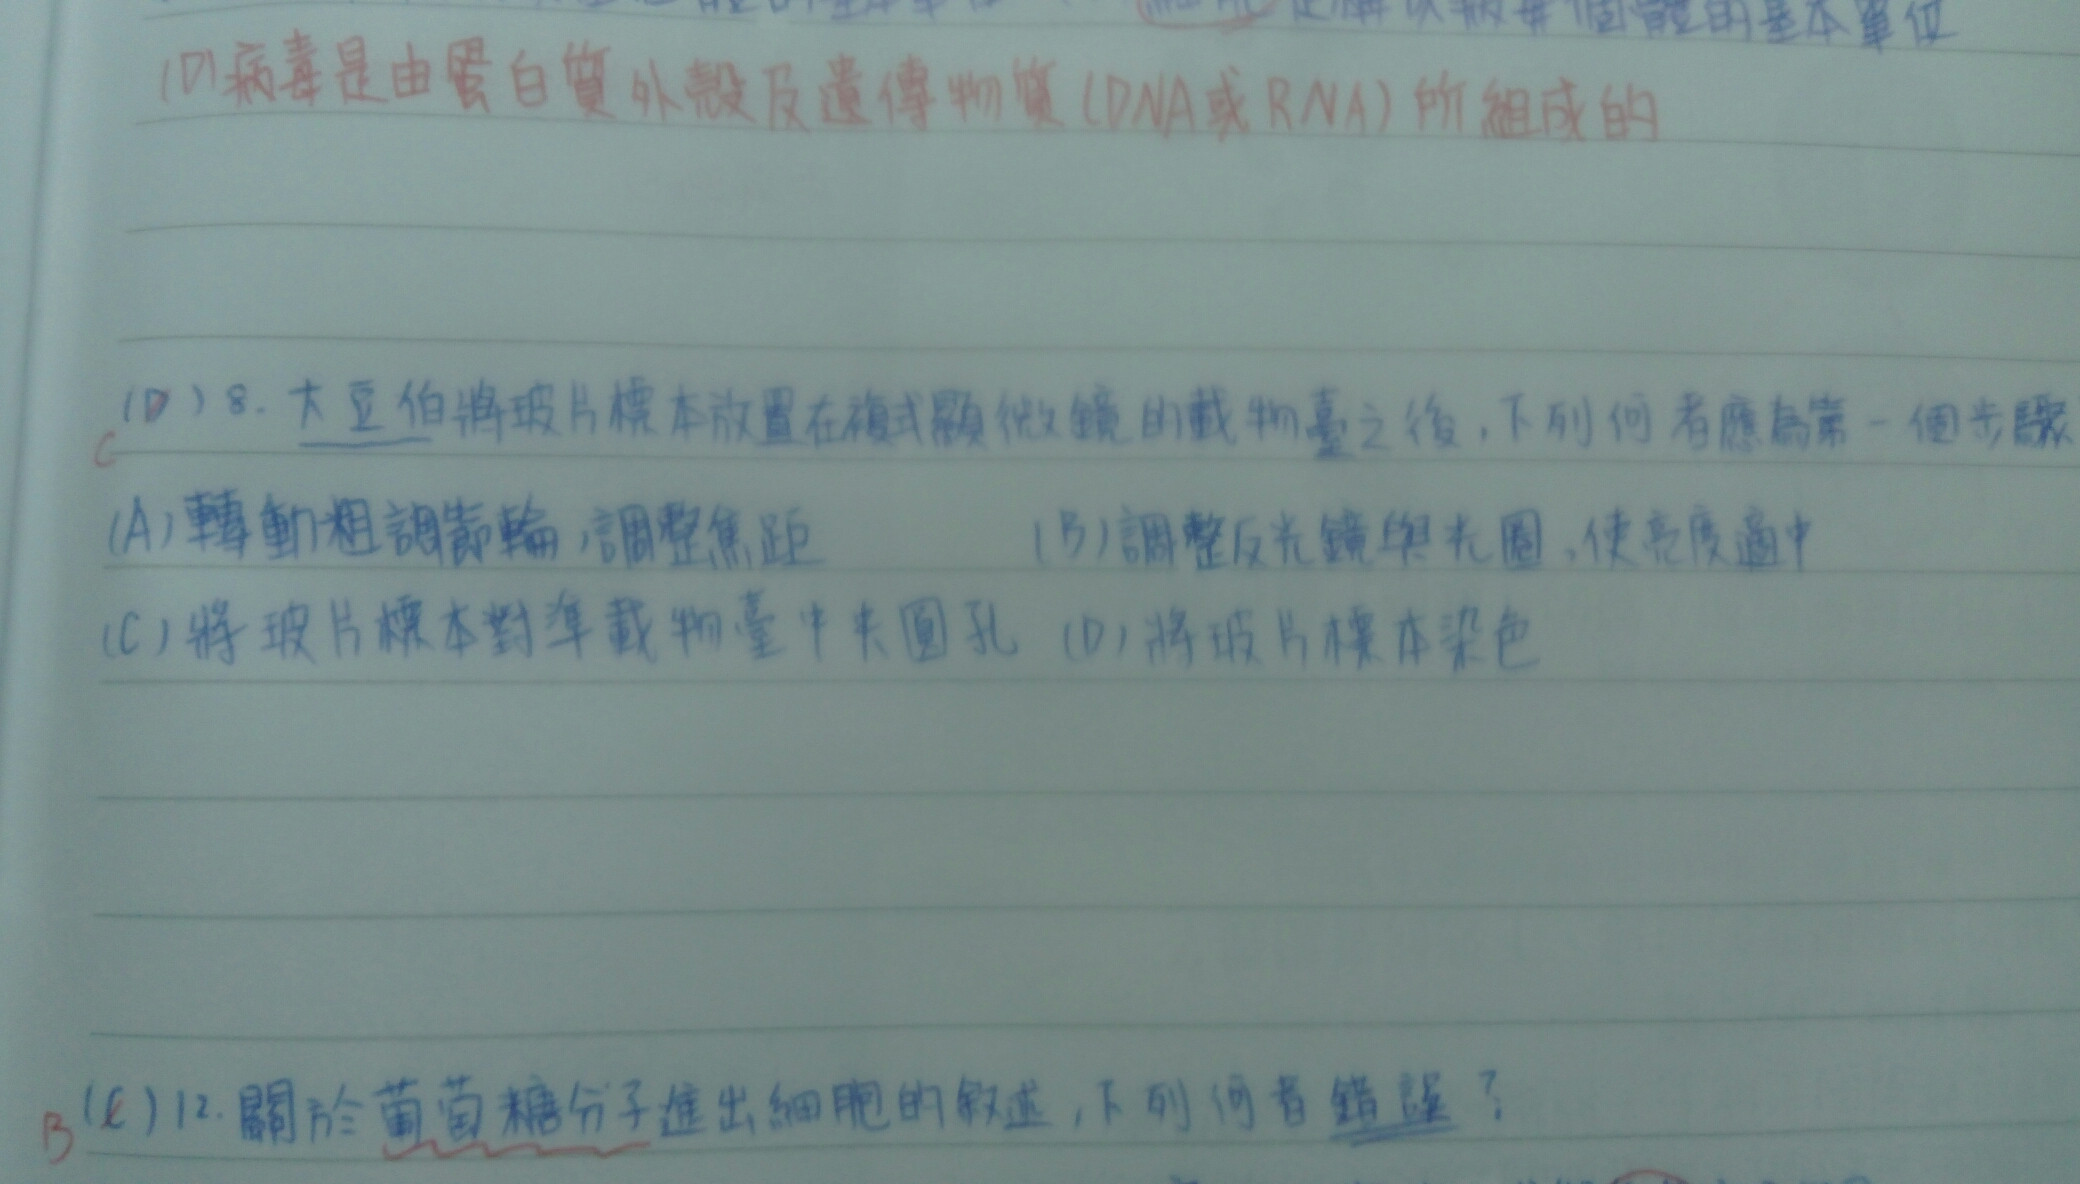 是解釋病毒個體的基本單位
(D)病毒是由蛋白質外殼及遺傳物質(DNA或RNA)所組成的
(D)8.大豆伯將玻片標本放置在複式顯微鏡的載物臺之後,下列何者應為第一個步驟
C
(A)轉動粗調節輪,調整焦距 (B)調整反光鏡與光圈,使亮度適中
(C)將玻片標本對準載物臺中央圓孔 (D)將玻片標本染色
(C)12.關於葡萄糖分子進出細胞的敘述,下列何者錯誤?
B